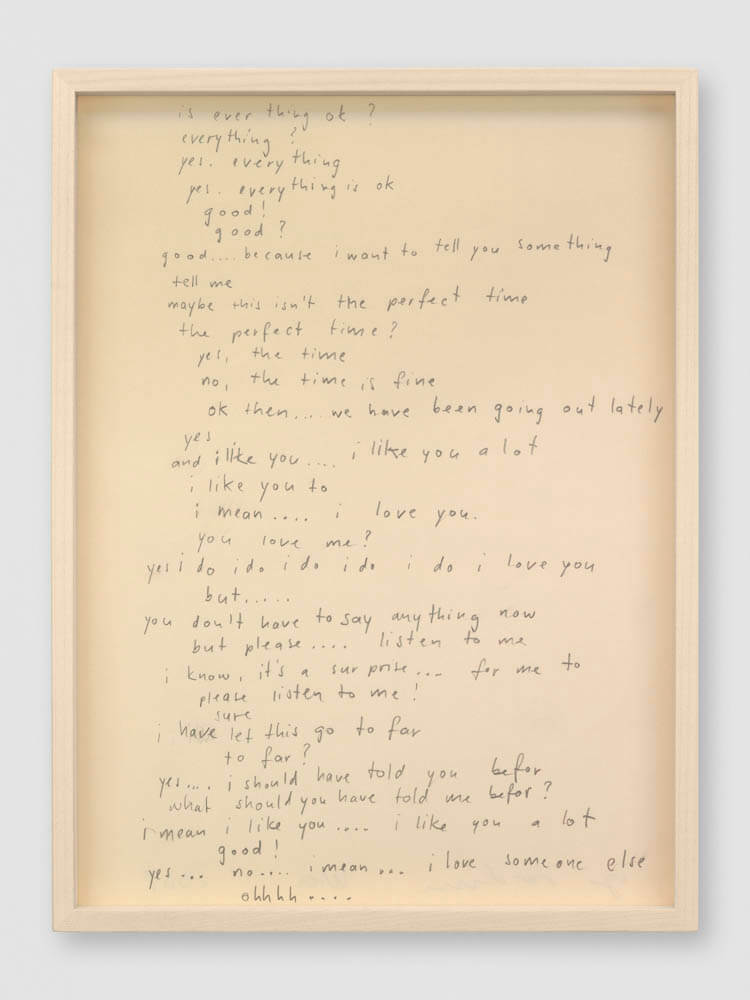 is ever thing ok ?
everything ?
yes. everything
yes. everything is ok
good!
good ?
good.... because i want to tell you something
tell me
maybe this isn't the perfect time
the perfect time?
yes, the time
no, the time is fine
ok then.... we have been going out lately
yes
and i like you.... i like you a lot
i like you to
i mean.... i love you.
you love me?
yes i do i do i do i do i do i love you
but.....
you don't have to say anything now
but please.... listen to me
i know, it's a surprise... for me to
please listen to me!
sure
i have let this go to far
to far?
yes.... i should have told you befor
what should you have told me befor?
i mean i like you.... i like you a lot
good!
yes... no.... i mean... i love someone else
ohhhh....